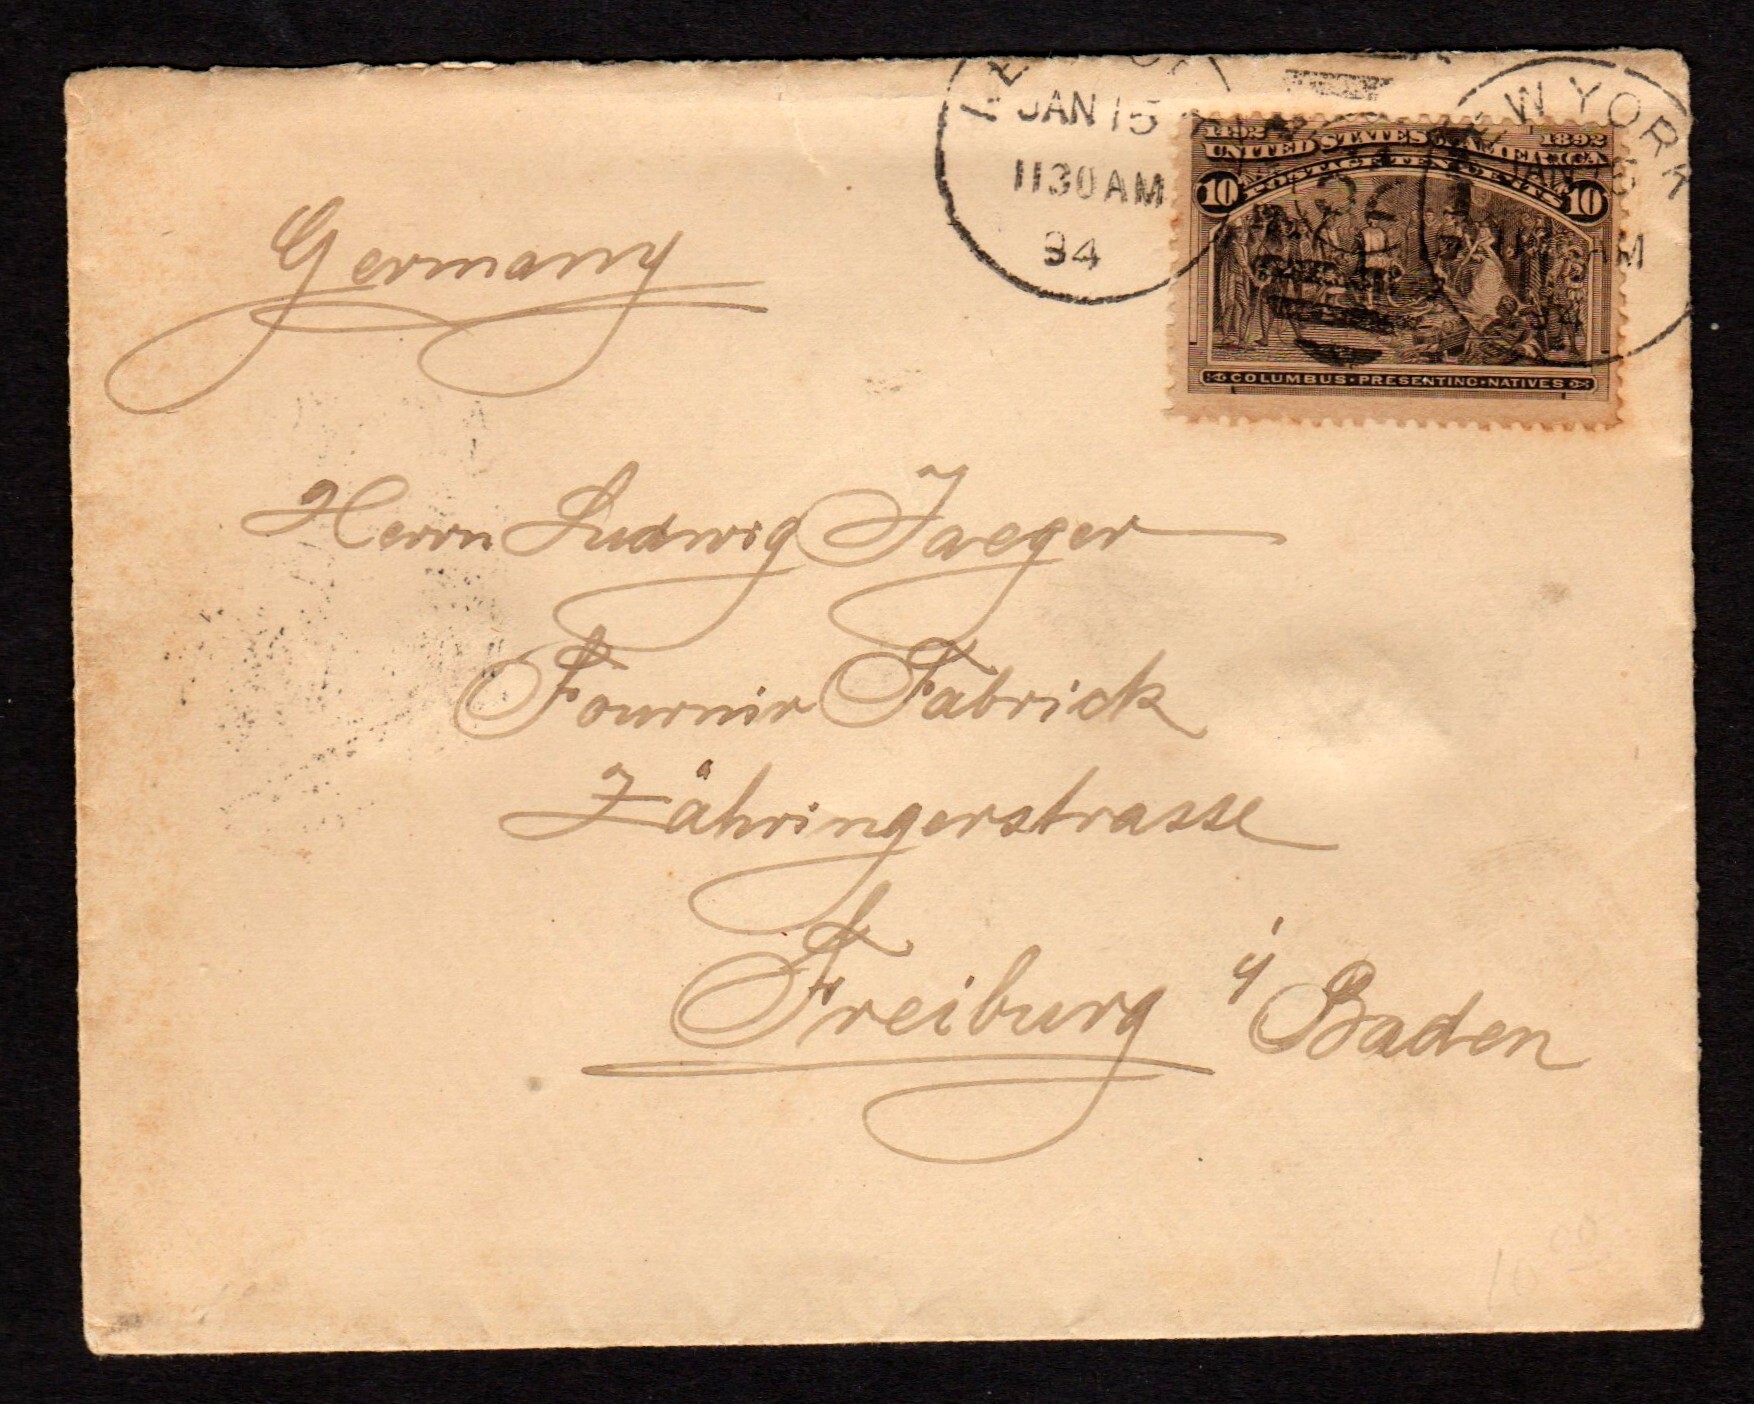 JAN 15
1130AM
94
NEW YORK
1492 1892
UNITED STATES OF AMERICA
POSTAGE TEN CENTS
10 10
COLUMBUS PRESENTING NATIVES
Germany
Herrn Ludwig Jaeger
Fournir Fabrick
Zähringerstrasse
Freiburg i/ Baden
10 00